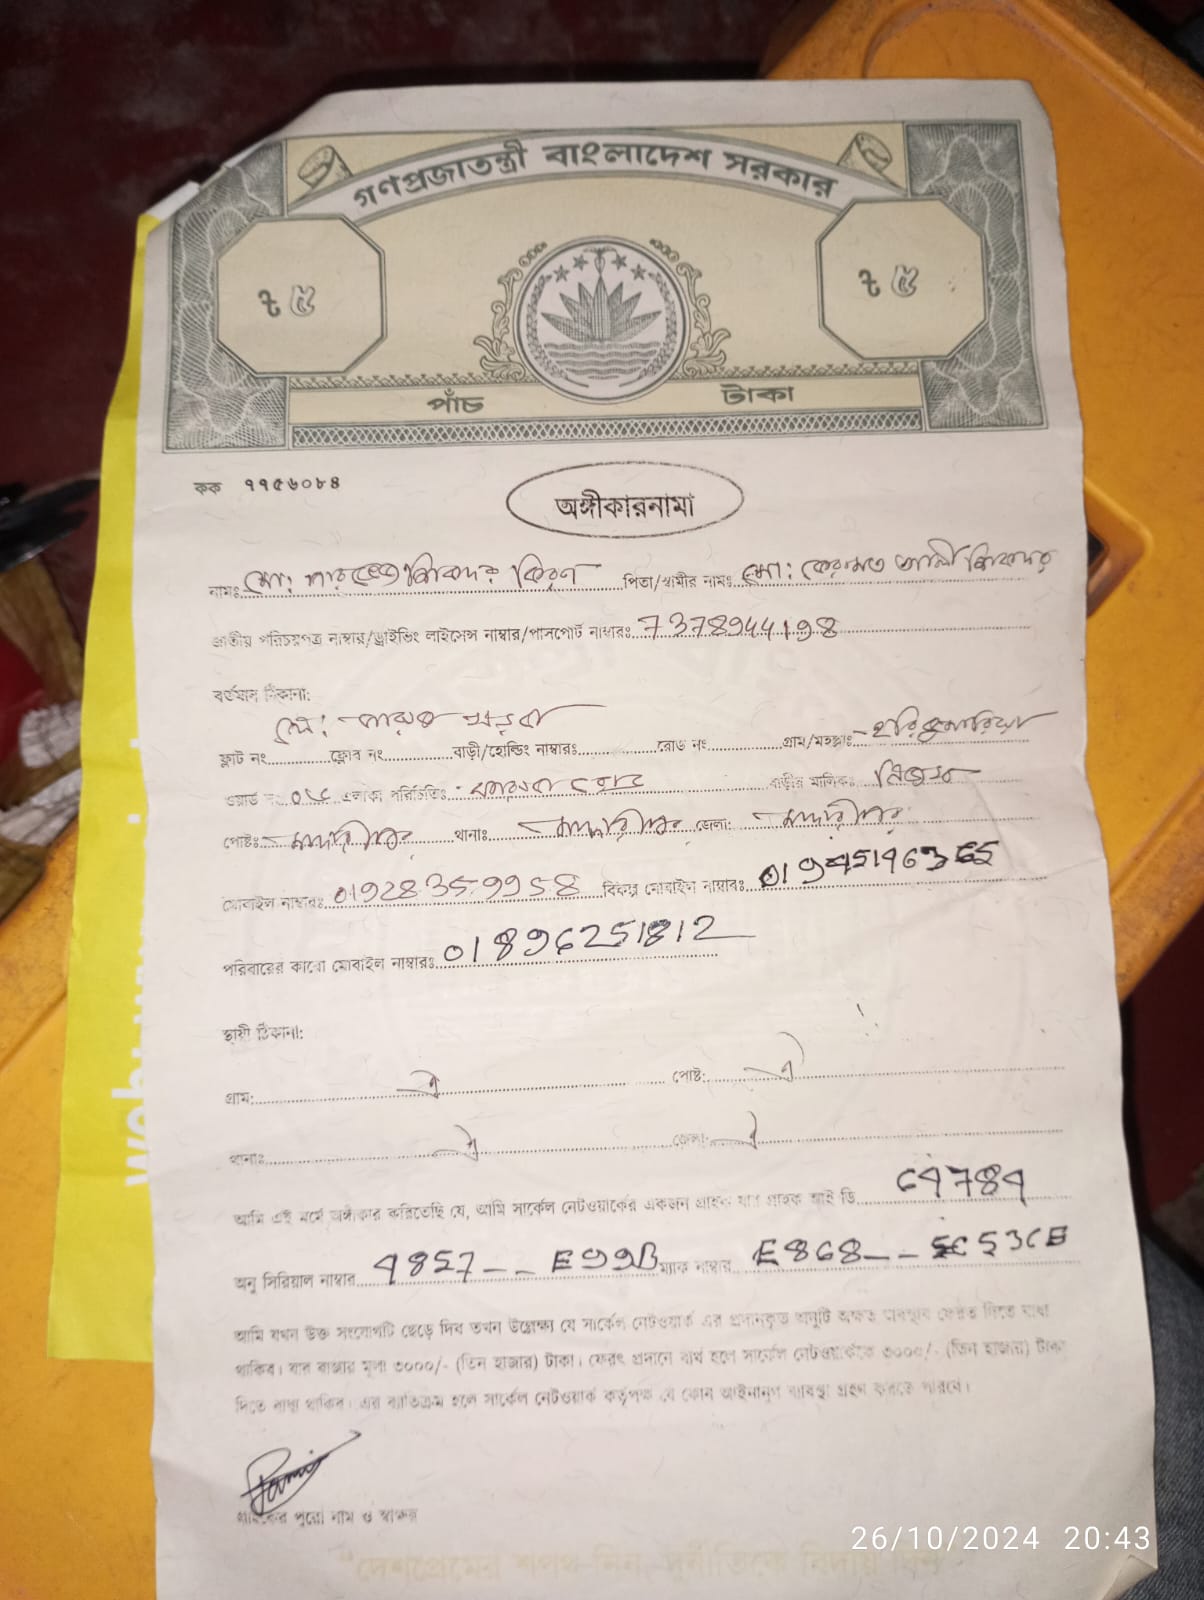 গণপ্রজাতন্ত্রী বাংলাদেশ সরকার
৳ ৫
৳ ৫
পাঁচ টাকা
কক ৭৭৫৬০৮৪
অঙ্গীকারনামা
নামঃ মো: শিকদার কিরণ পিতা/স্বামীর নামঃ মো: কেরামত আলী শিকদার
জাতীয় পরিচয়পত্র নাম্বার/ড্রাইভিং লাইসেন্স নাম্বার/পাসপোর্ট নাম্বারঃ 7378944198
বর্তমান ঠিকানা:
ফ্লাট নং ফ্লোর নং বাড়ী/হোল্ডিং নাম্বারঃ রোড নং গ্রাম/মহল্লাঃ হরিকুমারিয়া
ওয়ার্ড নং এলাকা পরিচিতি: বাড়ীর মালিক: নিজস্ব
পোষ্টঃ মাদারীপুর থানাঃ মাদারীপুর জেলা: মাদারীপুর
মোবাইল নাম্বারঃ 01928359958 বিকল্প মোবাইল নাম্বারঃ
পরিবারের কারো মোবাইল নাম্বারঃ 01896251812
স্থায়ী ঠিকানা:
গ্রাম: ঐ পোষ্ট: ঐ
থানাঃ ঐ জেলা: ঐ
আমি এই মর্মে অঙ্গীকার করিতেছি যে, আমি সার্কেল নেটওয়ার্কের একজন গ্রাহক যার গ্রাহক আই ডি
অনু সিরিয়াল নাম্বার ম্যাক নাম্বার
আমি যখন উক্ত সংযোগটি ছেড়ে দিব তখন উল্লেক্ষ্য যে সার্কেল নেটওয়ার্ক এর প্রদানকৃত অনুটি অক্ষত অবস্থায় ফেরত দিতে বাধ্য
থাকিব। যার বাজার মূল্য ৩০০০/- (তিন হাজার) টাকা। ফেরৎ প্রদানে ব্যর্থ হলে সার্কেল নেটওয়ার্ককে ৩০০০/- (তিন হাজার) টাকা
দিতে বাধ্য থাকিব। এর ব্যতিক্রম হলে সার্কেল নেটওয়ার্ক কর্তৃপক্ষ যে কোন আইনানুগ ব্যবস্থা গ্রহন করতে পারবে।
গ্রাহকের পুরো নাম ও স্বাক্ষর
"দেশপ্রেমের শপথ নিন, দুর্নীতিকে বিদায় দিন"
26/10/2024 20:43